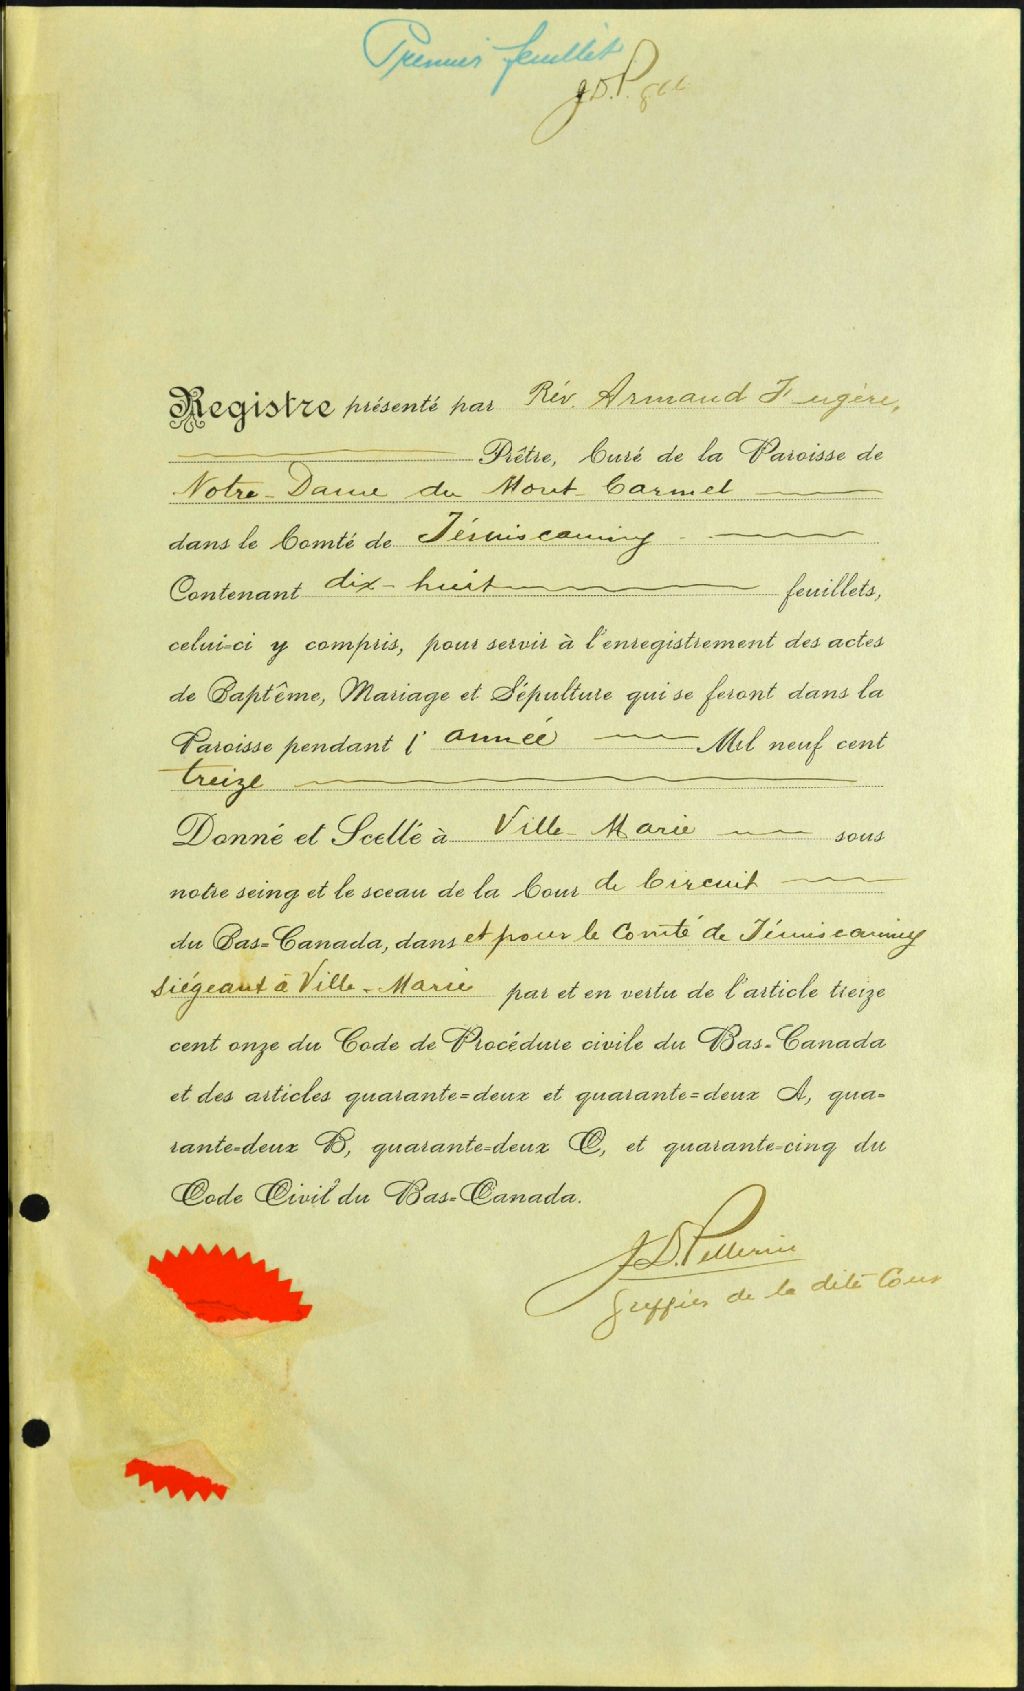 Premier feuillet
J.D.P.
Registre présenté par Rév. Armand Fugère,
Prêtre, Curé de la Paroisse de
Notre-Dame du Mont-Carmel
dans le Comté de Témiscaming
Contenant dix-huit feuillets,
celui=ci y compris, pour servir à l'enregistrement des actes
de Baptême, Mariage et Sépulture qui se feront dans la
Paroisse pendant l'année Mil neuf cent
treize
Donné et Scellé à Ville-Marie sous
notre seing et le sceau de la Cour de Circuit
du Bas=Canada, dans et pour le Comté de Témiscaming
siégeant à Ville-Marie par et en vertu de l'article treize
cent onze du Code de Procédure civile du Bas=Canada
et des articles quarante=deux et quarante=deux A, qua=
rante=deux B, quarante=deux C, et quarante=cinq du
Code Civil du Bas=Canada.
J.D. Pellerin
Greffier de la dite Cour